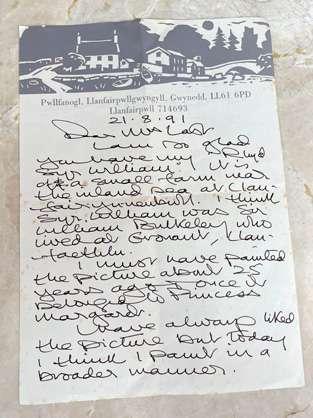 Pwllfanogl, Llanfairpwllgwyngyll, Gwynedd, LL61 6PD
Llanfairpwll 714693
21.8.91
Dear Mrs
I am so glad
you have my "Rhyd
Syr William". It is
of a small farm near
the inland sea at Llan-
fairynneubwll. I think
Syr William was Sir
William Bulkeley who
lived at Gronant, Llan-
faethlu.
I must have painted
the picture about 25
years ago & once it
belonged to Princess
Margaret.
I have always liked
the picture but today
I think I paint in a
broader manner.